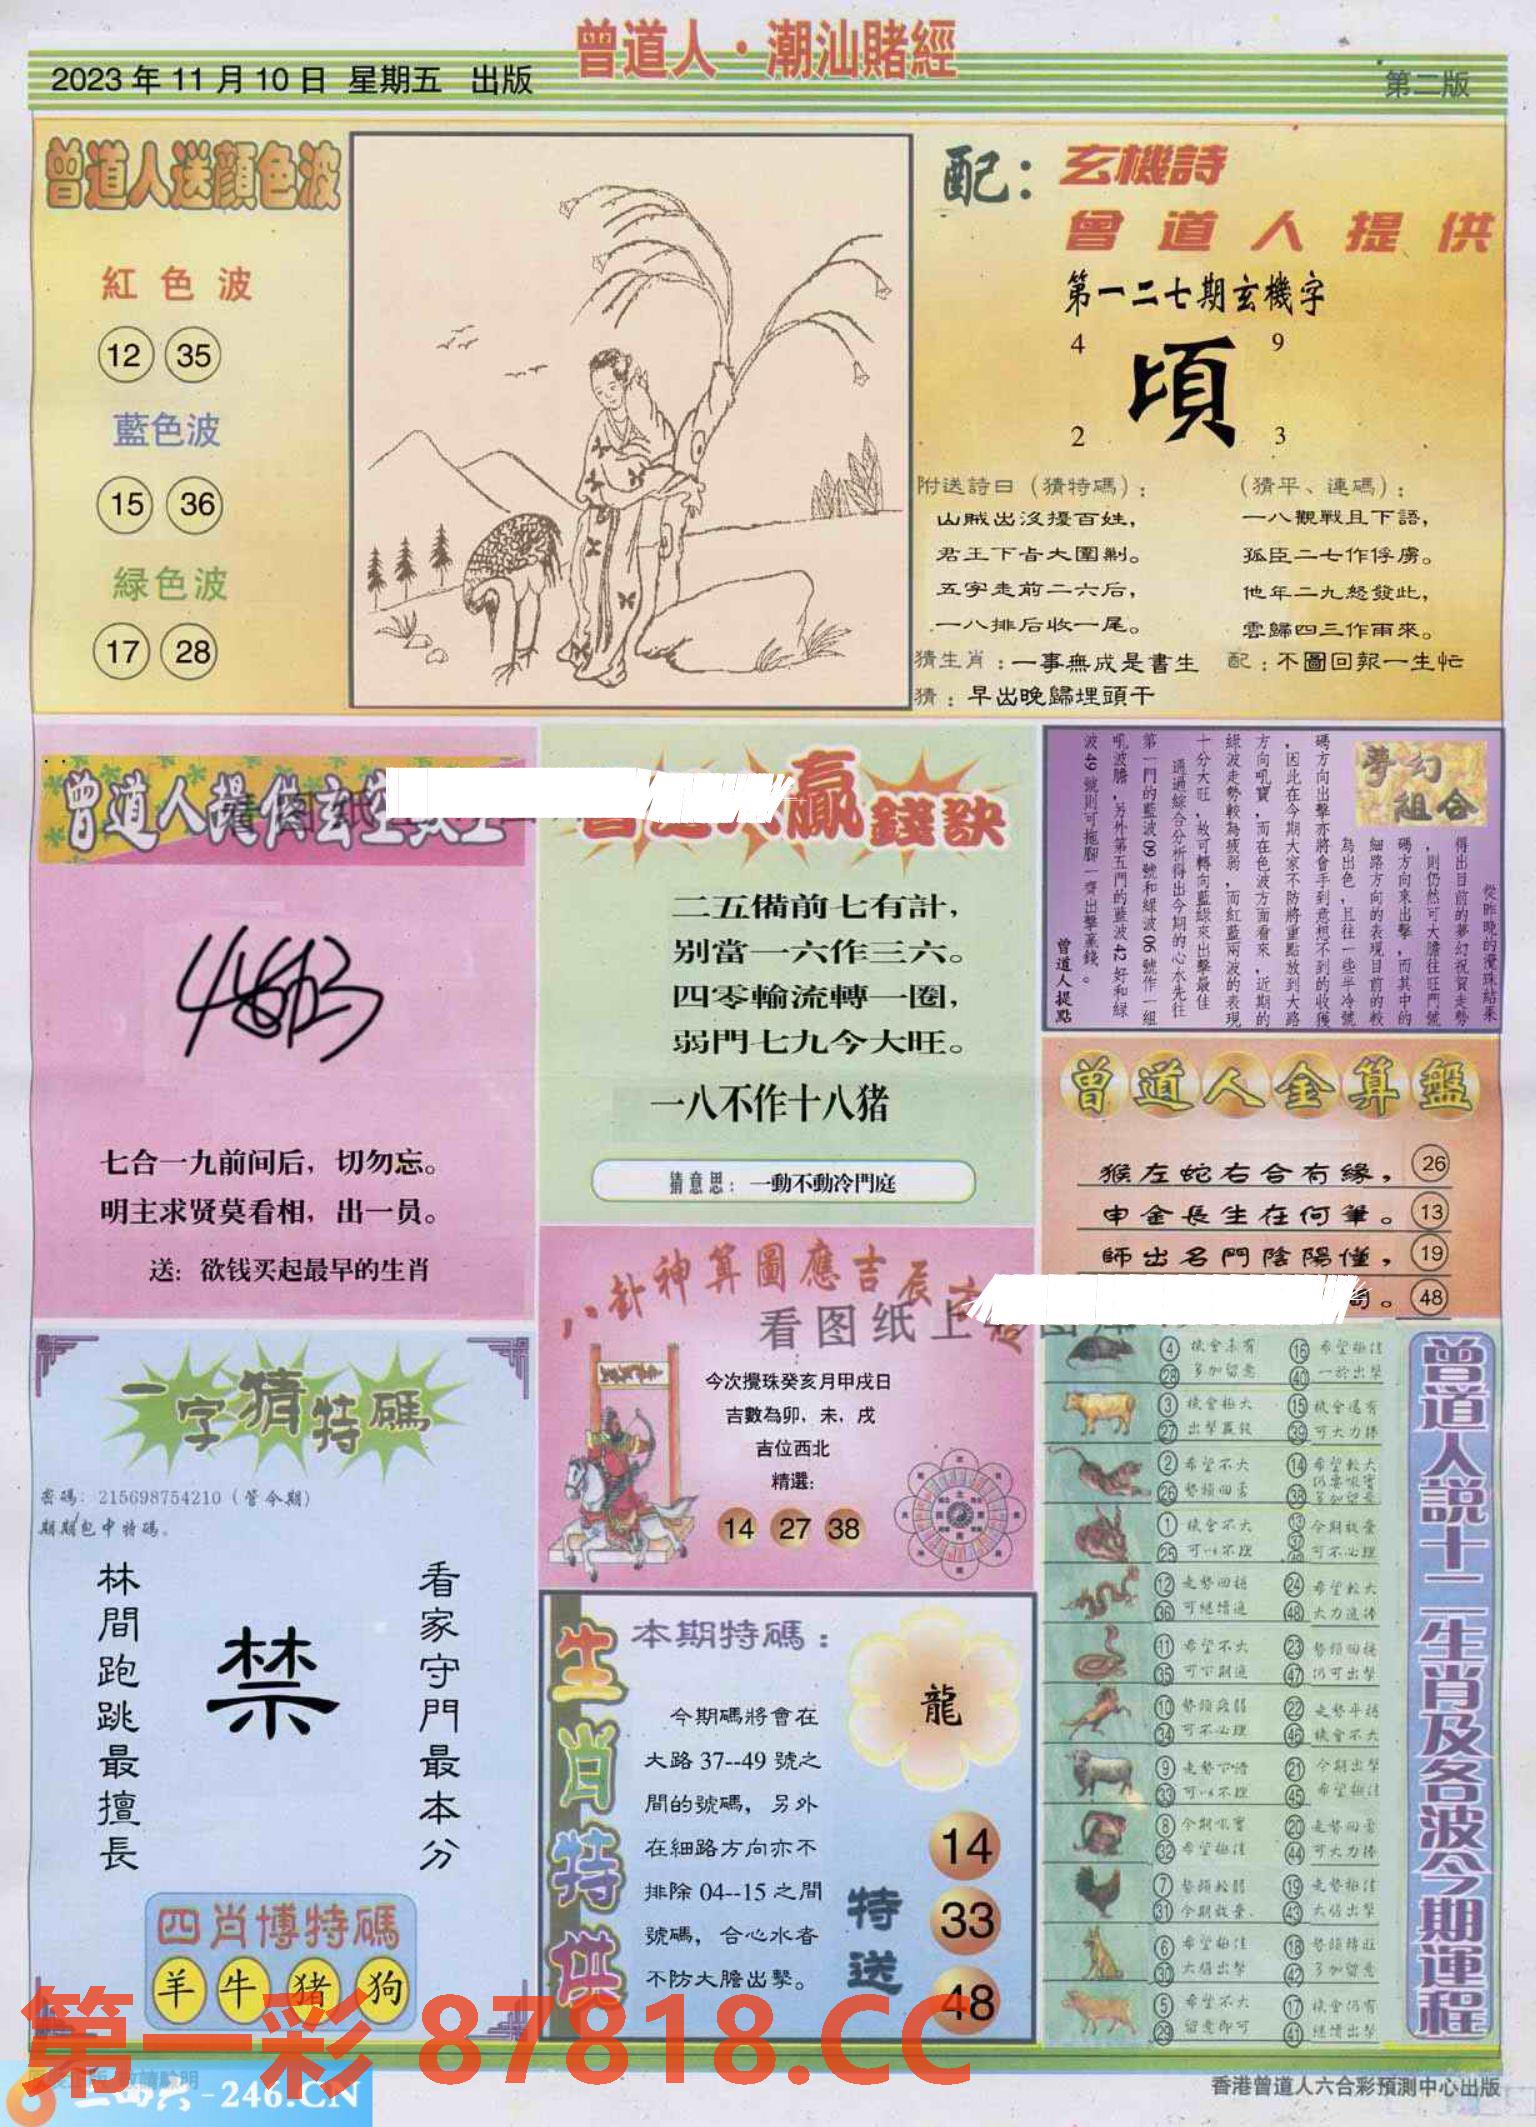 曾道人·潮汕賭經
2023年11月10日 星期五 出版
第二版
曾道人送顔色波
紅色波
12 35
藍色波
15 36
緑色波
17 28
配：玄機詩
曾道人提供
第一二七期玄機字
4 9
頃
2 3
附送詩曰（猜特碼）：
山賊出沒擾百姓，
君王下旨大圍剿。
五字走前二六后，
一八排后收一尾。
（猜平、連碼）：
一八觀戰且下語，
孤臣二七作俘虜。
他年二九怒發此，
雲歸四三作雨來。
猜生肖：一事無成是書生 配：不圖回報一生忙
猜：早出晚歸埋頭干
曾道人提供玄
七合一九前间后，切勿忘。
明主求贤莫看相，出一员。
送：欲钱买起最早的生肖
贏錢訣
二五備前七有計，
别當一六作三六。
四零輸流轉一圈，
弱門七九今大旺。
一八不作十八猪
猜意思：一動不動冷門庭
夢幻組合
從昨晚的攪珠結果
得出目前的夢幻祝賀走勢
，則仍然可大膽往旺門號
碼方向來出擊，而其中的
細路方向的表現目前的較
為出色，且往一些半冷號
碼方向出擊亦將會手到意想不到的收獲
，因此在今期大家不防將重點放到大路
方向吼寶，而在色波方面看來，近期的
綠波走勢較為疲弱，而紅藍兩波的表現
十分大旺，故可轉向藍綠來出擊最佳
通過綜合分析得出今期的心水先往
第一門的藍波09號和綠波06號作一組
吼波膽，另外第五門的藍波42好和綠
波49號則可拖腳一齊出擊贏錢。
曾道人提點
曾道人金算盤
猴左蛇右合有緣， 26
申金長生在何筆。 13
師出名門陰陽僅， 19
。 48
八卦神算圖應吉辰
看图纸上
今次攪珠癸亥月甲戌日
吉數為卯，未，戌
吉位西北
精選：
14 27 38
一字猜特碼
密碼：215698754210（管今期）
期期包中特碼。
看家守門最本分
禁
林間跑跳最擅長
四肖博特碼
羊 牛 猪 狗
生肖特供
本期特碼：
龍
今期碼將會在
大路37--49號之
間的號碼，另外
在細路方向亦不
排除04--15之間
號碼，合心水者
不防大膽出擊。
特送
14
33
48
曾道人説十二生肖及各波今期運程
4 機會未有 16 希望極佳
28 多加留意 40 一於出擊
3 機會極大 15 機會還有
27 出擊贏錢 39 可大力捧
2 希望不大 14 希望較大
26 勢頭回落 38
1 機會不大 13 今期放棄
25 可以不理 可不必理
12 走勢回穩 24 希望較大
36 可繼續追 48 大力追捧
11 希望不大 23 勢頭回穩
35 可下期追 47 仍可出擊
10 勢頭疲弱 22
34 可不必理 46 機會不大
9 走勢下滑 21 今期出擊
33 可以不理 45 希望極佳
8 今期吼寶 20 走勢回落
32 希望極佳 44 可大力捧
7 勢頭較弱 19 走勢極佳
31 今期放棄 43 大膽出擊
6 希望極佳 18 勢頭轉旺
30 大膽出擊 42 多加留意
5 希望不大 17 機會仍有
29 留意即可 41 繼續出擊
第一彩 87818.CC
二四六-246.CN
香港曾道人六合彩預測中心出版